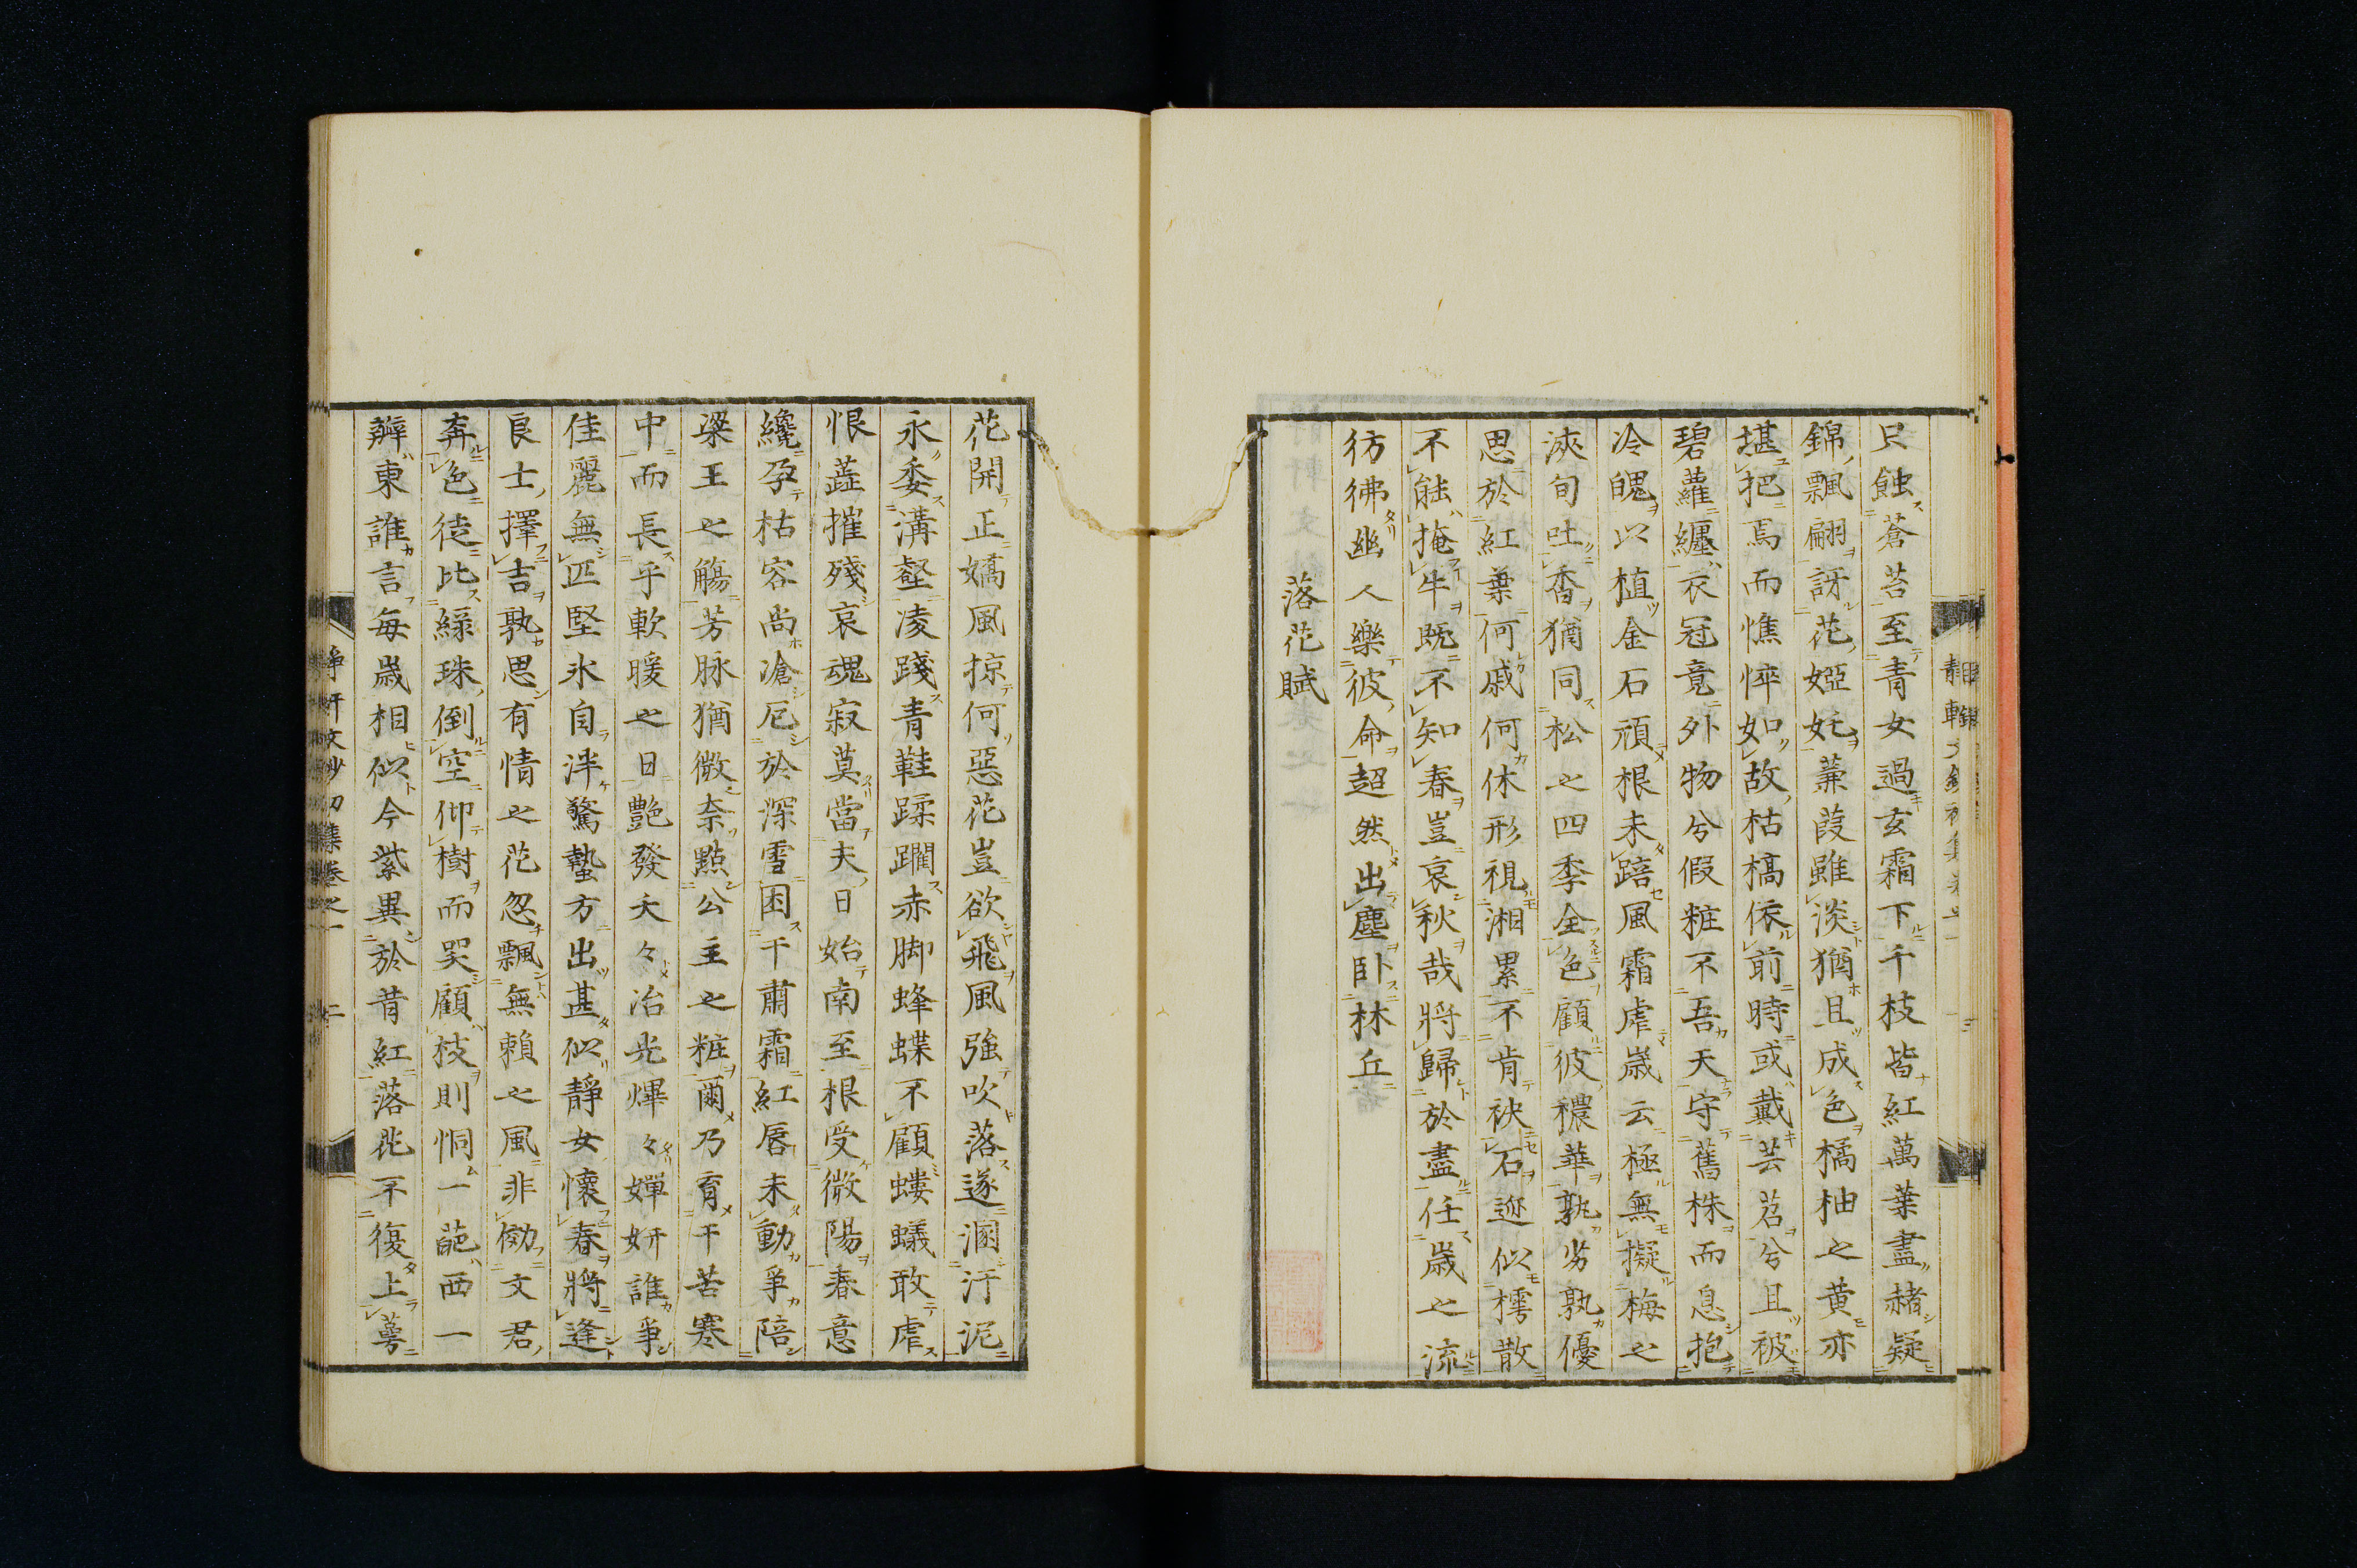 只蝕蒼苔至青女過玄霜下千枝皆紅萬葉盡赭疑
錦飄翩訝花婭妊蒹葭雖淡猶且成色橘柚之黄亦
堪把焉而憔悴如故枯槁依前時或戴芸苕兮且被
碧蘿纏衣冠竟外物兮假粧不吾天守舊株而息抱
冷魄以植金石頑根未踣風霜虐歳云極無擬梅之
浹旬吐香猶同松之四季全色顧彼穠華孰劣孰優
思於紅葉何戚何休形視湘累不肯袂石迹似樗散
不能掩牛既不知春豈哀秋哉將歸於盡任歳之流
彷彿幽人樂彼命超然出塵卧林丘
落花賦
花開正嬌風掠何惡花豈欲飛風強吹落遂溷汙泥
永委溝壑凌踐青鞋蹂躙赤脚蜂蝶不顧螻蟻敢虐
恨蕋摧殘哀魂寂莫當夫日始南至根受微陽春意
纔孕枯容尚滄厄於深雪困干肅霜紅唇未動爭陪
梁王之觴芳脉猶微奈點公主之粧爾乃育干苦寒
中而長乎軟暖之日艷發夭々冶光燁々嬋妍誰爭
佳麗無匹堅氷自泮驚蟄方出甚似靜女懷春將逢
良士擇吉孰思有情之花忽飄無賴之風非効文君
奔色徒比緑珠倒空仰樹而哭顧枝則恫一葩西一
瓣東誰言毎歳相似今紫異於昔紅落花不復上萼
靜軒文鈔初集卷之一
二